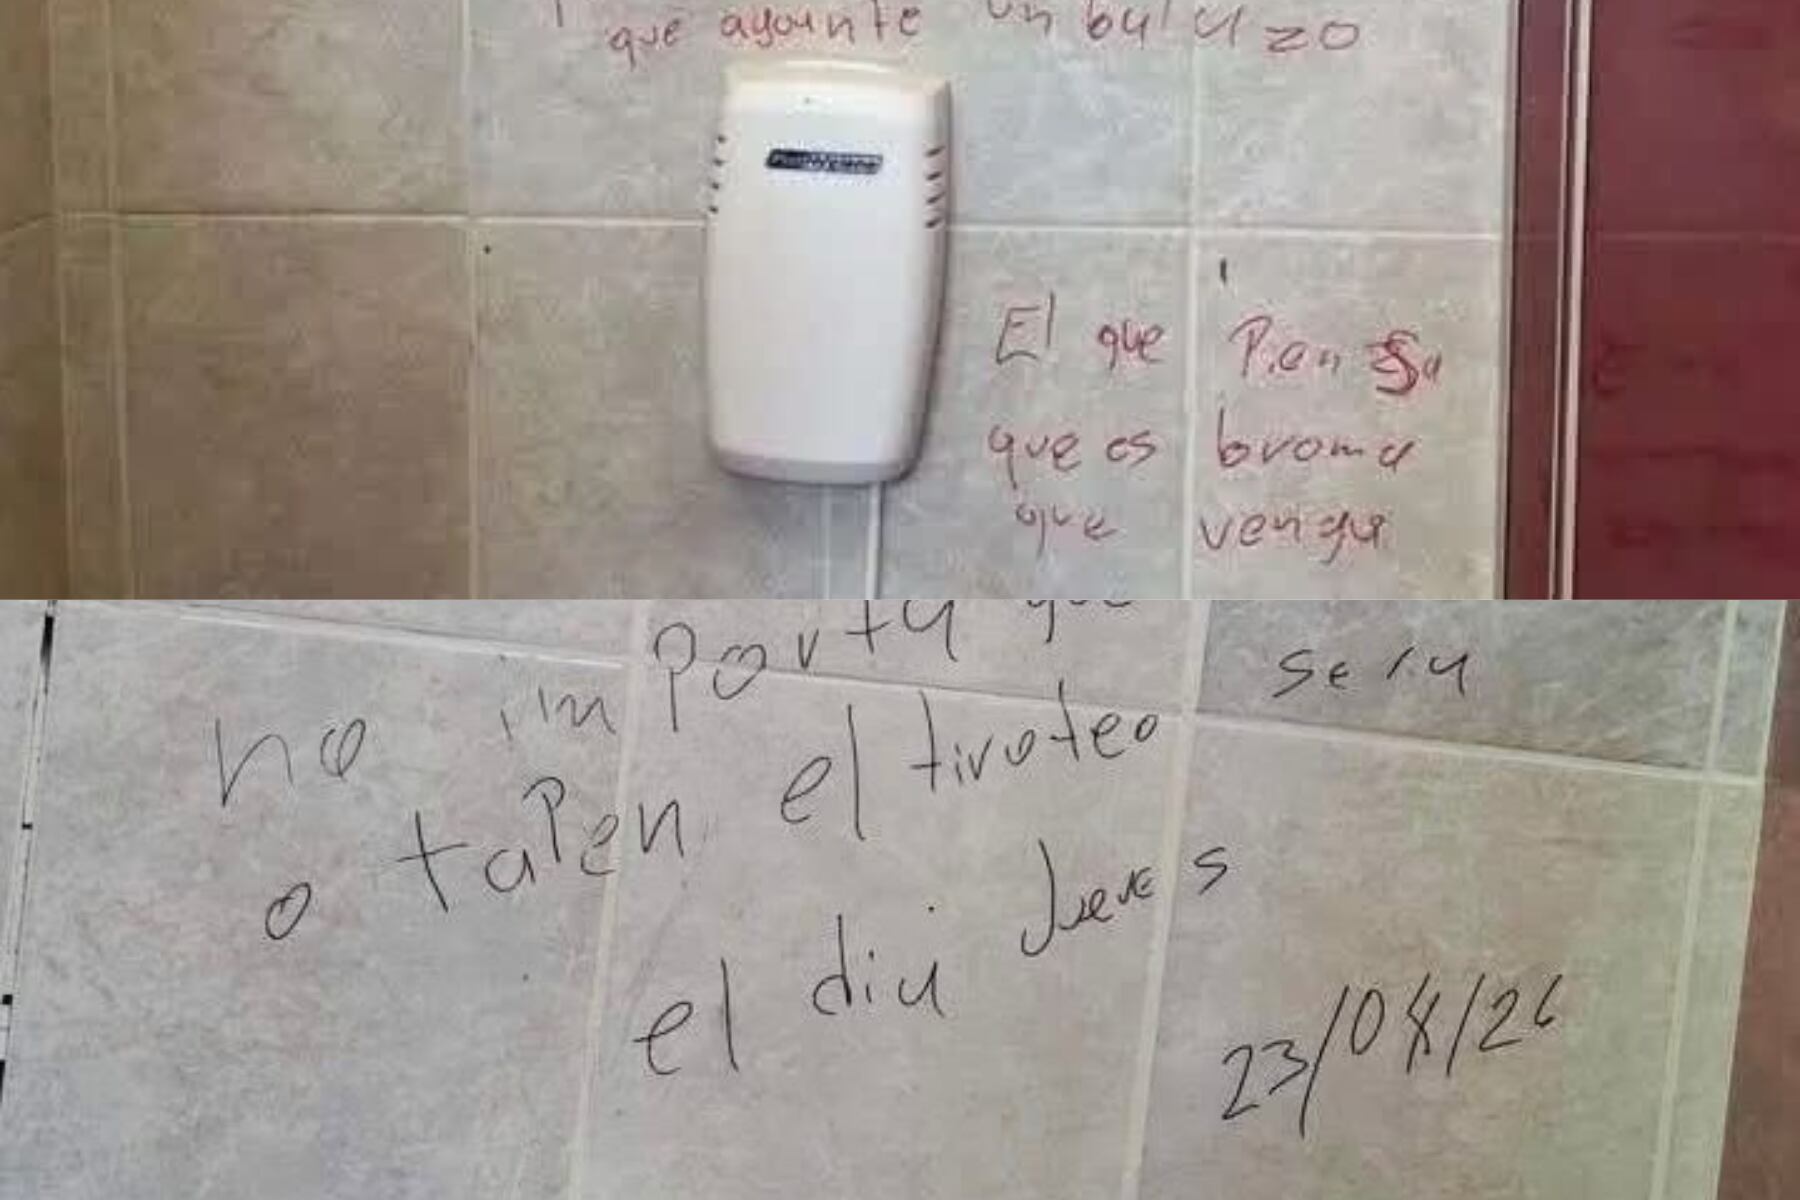 que aguante un balazo
El que Piensa
que es broma
que venga
no importa que
o tapen el tiroteo sera
el dia Jueves
23/04/26